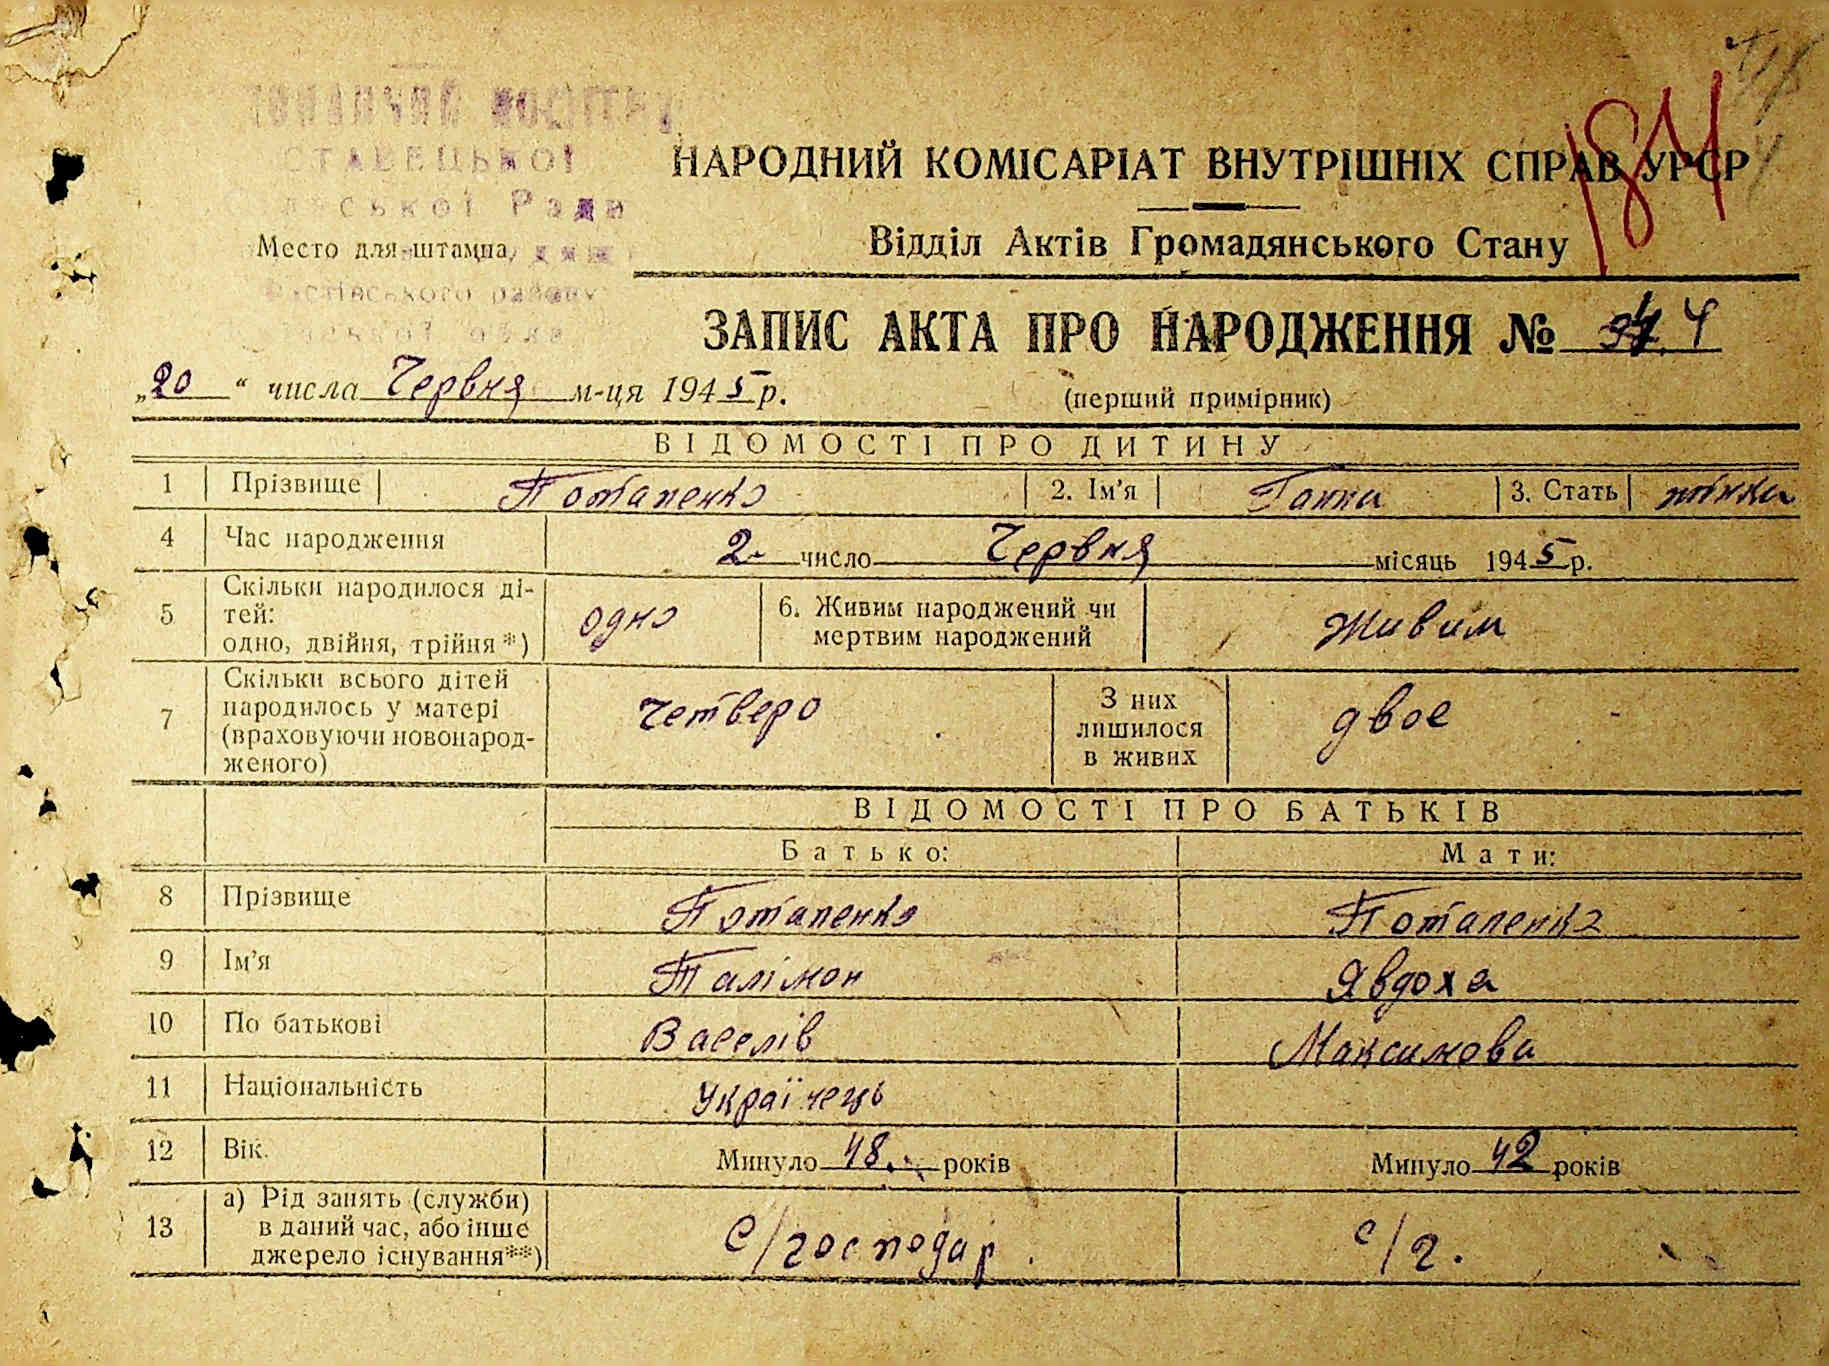 СТАВЕЦЬКОЇ
Место для штампа
НАРОДНИЙ КОМІСАРІАТ ВНУТРІШНІХ СПРАВ УРСР
184
Відділ Актів Громадянського Стану
ЗАПИС АКТА ПРО НАРОДЖЕННЯ №
„20“ числа Червня м-ця 1945 р.
(перший примірник)
ВІДОМОСТІ ПРО ДИТИНУ
1 Прізвище Потапенко 2. Ім'я Ганна 3. Стать жінка
4 Час народження 2 число Червня місяць 1945 р.
5 Скільки народилося ді-
тей:
одно, двійня, трійня*) одно
6. Живим народжений чи
мертвим народжений Живим
7 Скільки всього дітей
народилось у матері
(враховуючи новонарод-
женого) четверо
З них
лишилося
в живих двое
ВІДОМОСТІ ПРО БАТЬКІВ
Батько: Мати:
8 Прізвище Потапенко Потапенко
9 Ім'я Талімон Явдоха
10 По батькові Васелів Максимова
11 Національність Українець
12 Вік. Минуло 48 років Минуло 42 років
13 а) Рід занять (служби)
в даний час, або інше
джерело існування**) С/господар. с/г.